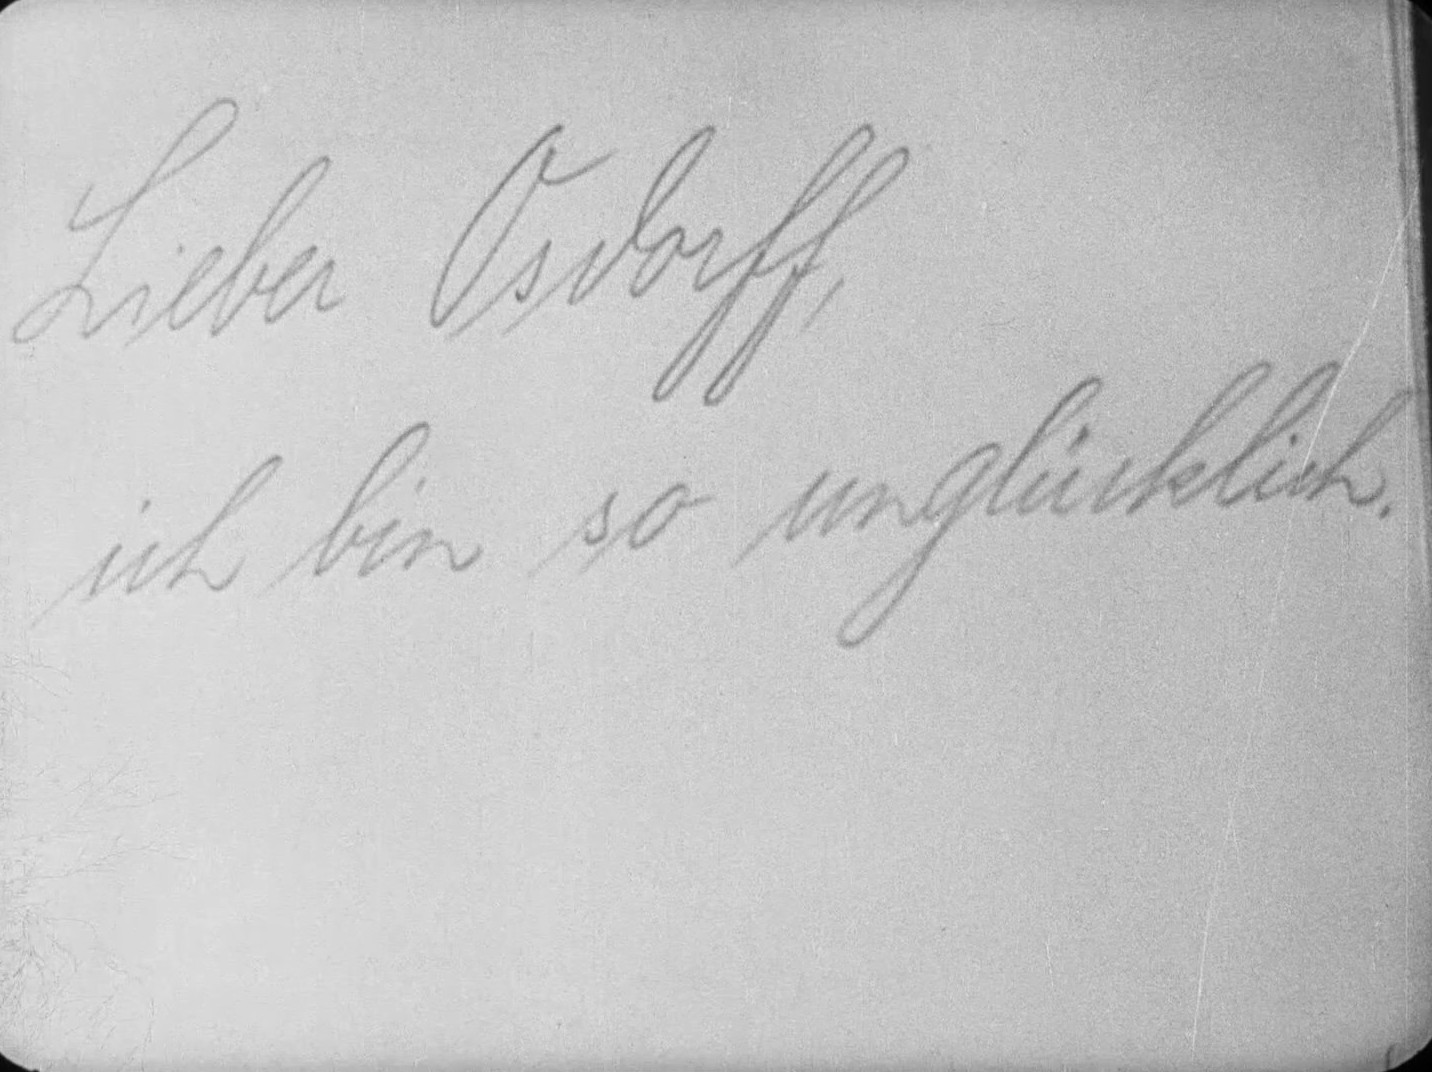 Lieber Osdorff,
ich bin so unglücklich.